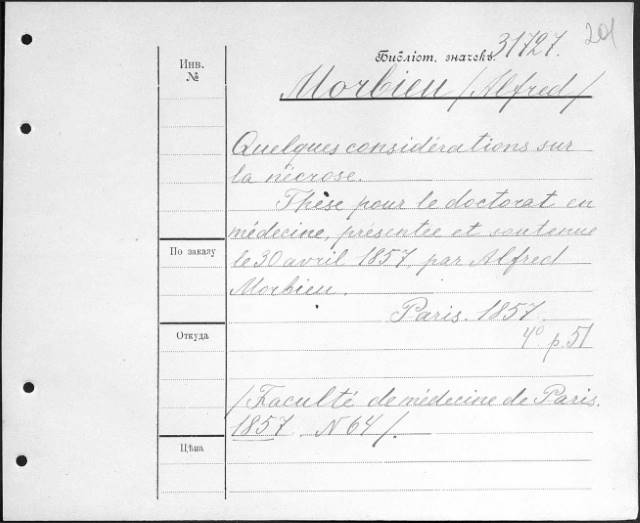 201
Библіот. значекъ. 31727.
Инв.
№
Morbieu /Alfred/
Quelques considérations sur
la nécrose.
Thèse pour le doctorat en
médecine, présentée et soutenue
По заказу
le 30 avril 1857, par Alfred
Morbieu.
Paris. 1857.
Откуда
4° p. 51
/Faculté de médecine de Paris.
1857 N 64/.
Цѣна